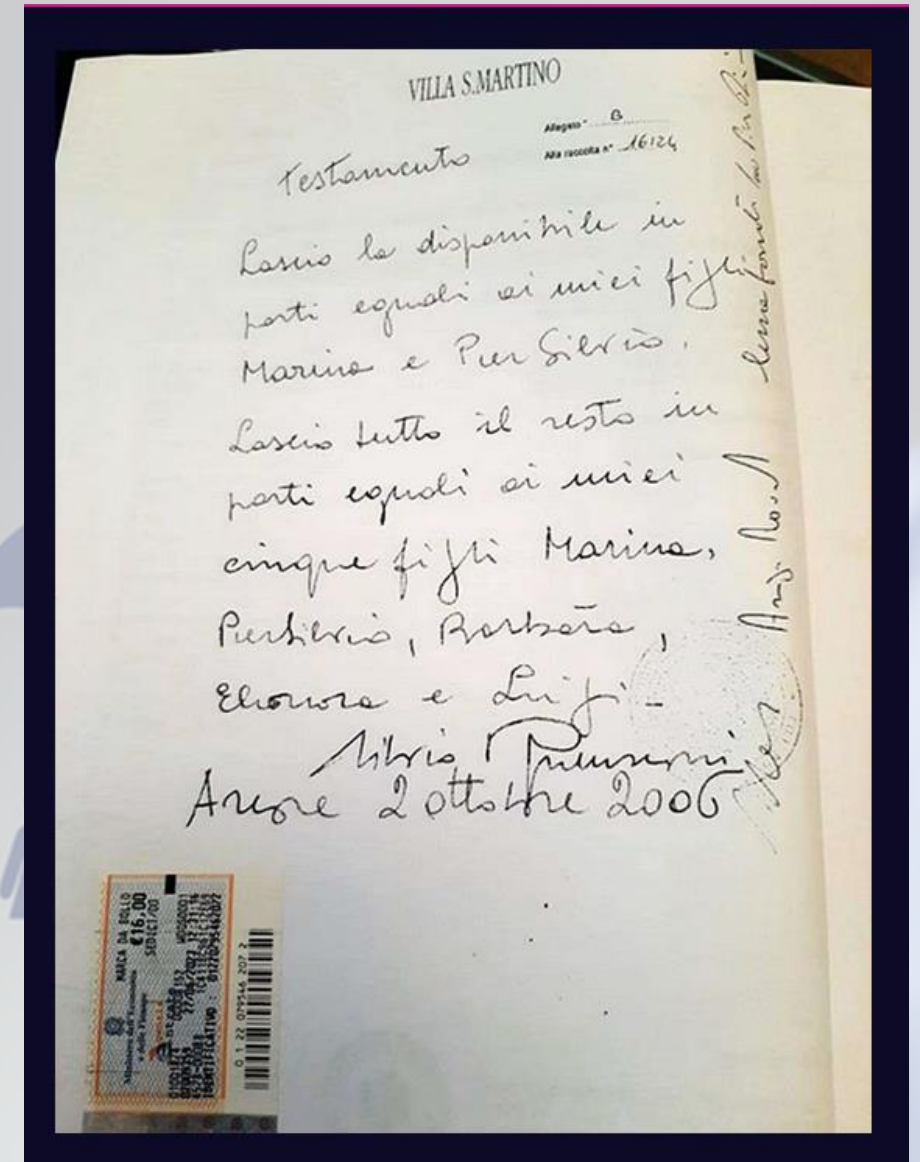 VILLA S.MARTINO
Allegato " B
Alla raccolta n° 16124
Testamento
Lascio la disponibile in
parti eguali ai miei figli
Marina e Pier Silvio.
Lascio tutto il resto in
parti eguali ai miei
cinque figli Marina,
PierSilvio, Barbara,
Eleonora e Luigi-
Silvio Berlusconi
Arcore 2 ottobre 2006
MARCA DA BOLLO
€16,00
SEDICI/00
Ministero dell'Economia
e delle Finanze
IDENTIFICATIVO : 01220795462072
0 1 22 079546 207 2